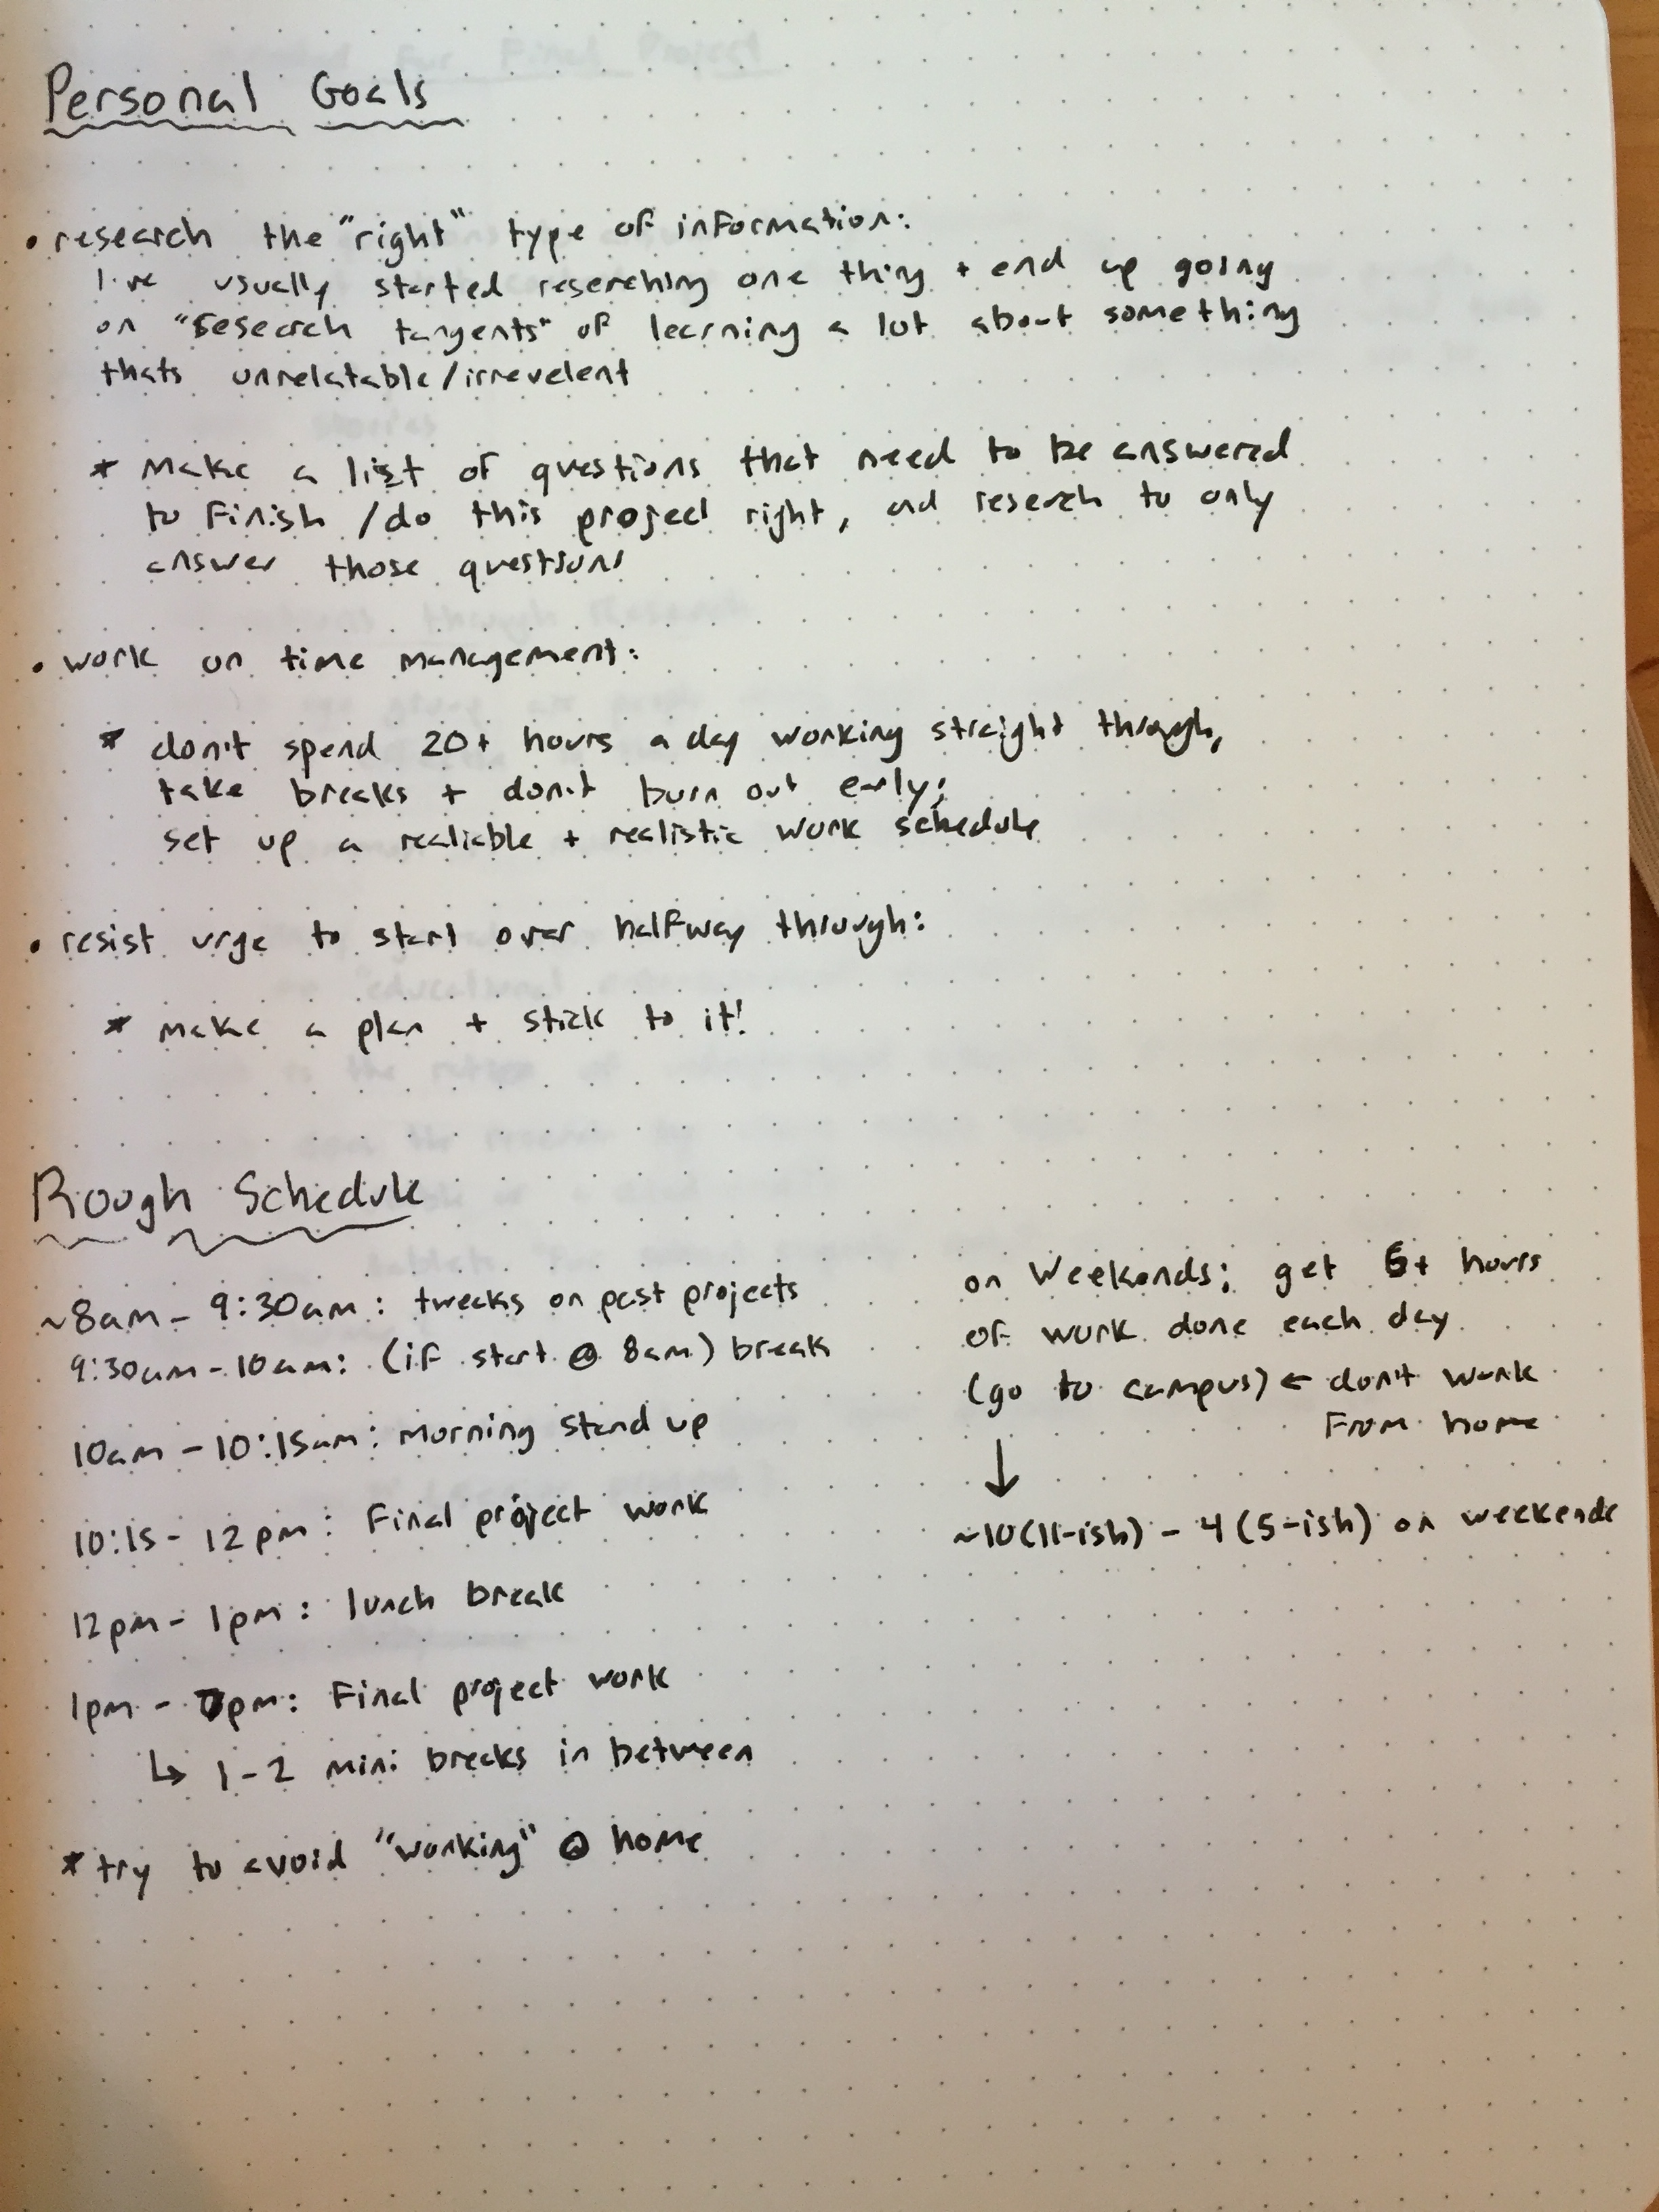 Personal Goals
• research the "right" type of information:
I've usually started reserching one thing + end up going
on "research tangents" of learning a lot about something
thats unrelatable/irrevelent
* make a list of questions that need to be answered
to finish /do this project right, and reserch to only
answer those questions
• work on time management:
* don't spend 20+ hours a day working straight through,
take breaks + don't burn out early;
set up a realiable + realistic work schedule
• resist urge to start over halfway through:
* make a plan + stick to it!
Rough Schedule
~8am - 9:30am: tweaks on past projects
9:30am - 10am: (if start @ 8am) break
10am - 10:15am: morning stand up
10:15 - 12pm: Final project work
12pm - 1pm: lunch break
1pm - 7pm: Final project work
↳ 1-2 mini breaks in between
* try to avoid "working" @ home
on Weekends; get 6+ hours
of work done each day
(go to campus) ← don't work
from home
↓
~10(11-ish) - 4(5-ish) on weekends